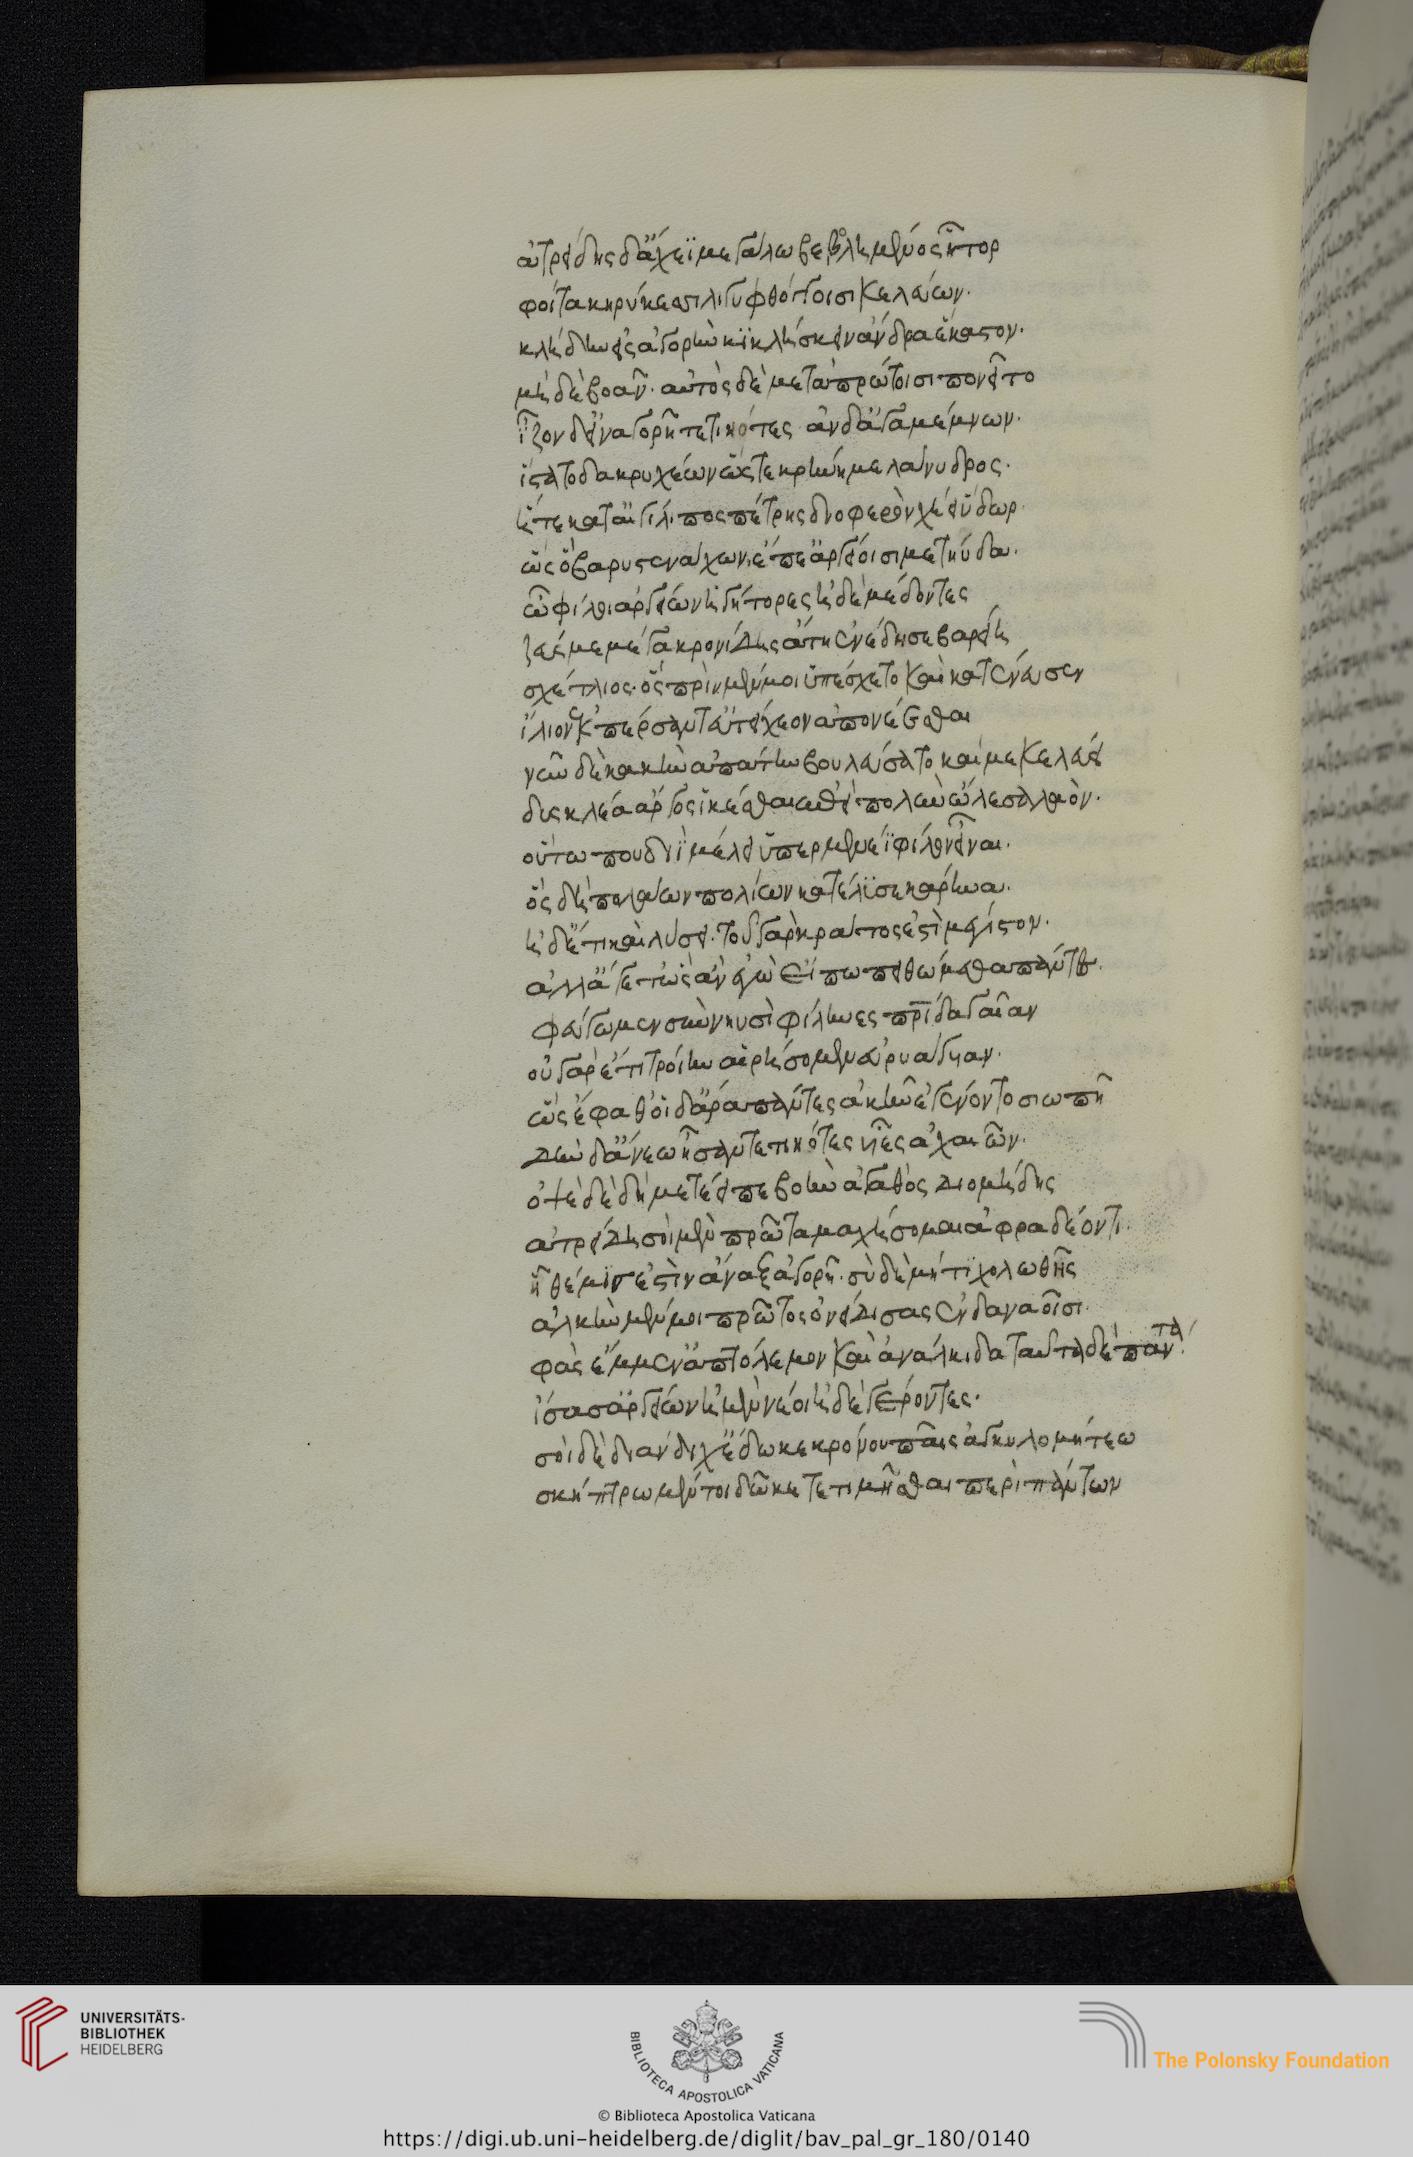 ἀτρείδης δ' ἄχεϊ μεγάλω βεβολημένος ἦτορ
φοίτα κηρύκεσσι λιγυφθόγγοισι κελεύων.
κλήδην εἰς ἀγορὴν κϊκλήσκειν ἄνδρα ἕκαστον.
μὴ δὲ βοᾶν. αὐτὸς δὲ μετὰ πρώτοισι πονεῖτο
ἷζον δ' εἰν ἀγορῆ τετιηότες ἂν δ' ἀγαμέμνων.
ἵστατο δακρυχέων ὥς τε κρήνη μελάνυδρος.
ἥ τε κατ' αἰγίλιπος πέτρης δνοφερὸν χέει ὕδωρ.
ὣς ὃ βαρυστενάχων ἔπε' ἀργείοισι μετηύδα.
ὦ φίλοι ἀργείων ἡγήτορες ἠδὲ μέδοντες
ζεύς με μέγα κρονίδης ἄτη ἐνέδησε βαρείη
σχέτλιος. ὃς πρὶν μέν μοι ὑπέσχετο καὶ κατένευσεν
ἴλιον ἐκπέρσαντ' εὐτείχεον ἀπονέεσθαι
νῦν δὲ κακὴν ἀπάτην βουλεύσατο καί με κελεύει
δυσκλέα ἄργος ἱκέσθαι ἐπεὶ πολὺν ὤλεσα λαόν.
οὕτω που διῒ μέλλει ὑπερμενέϊ φίλον εἶναι.
ὃς δὴ πολλάων πολίων κατέλϋσε κάρηνα.
ἠδ' ἔτι καὶ λύσει. τοῦ γὰρ κράτος ἐστὶ μέγιστον.
ἀλλ' ἄγετ' ὡς ἂν ἐγὼν εἴπω πειθώμεθα πάντες.
φεύγωμεν σὺν νηυσὶ φίλην ἐς πρίδα γαῖαν
οὐ γὰρ ἔτι τροίην αἱρήσομεν εὐρυάγυιαν.
ὣς ἔφαθ' οἳ δ' ἄρα πάντες ἀκὴν ἐγένοντο σιωπῆ
δὴν δ' ἄνεω ἦσαν τετιηότες υἷες ἀχαιῶν.
ὀψὲ δὲ δὴ μετέειπε βοὴν ἀγαθὸς διομήδης
ἀτρείδη σοὶ μὲν πρῶτα μαχήσομαι ἀφραδέοντι.
ἣ θέμϊς ἐστὶν ἄναξ ἀγορῆ. σὺ δὲ μή τι χολωθῆς
ἀλκὴν μέν μοι πρῶτος ὀνείδισας ἐν δαναοῖσι.
φὰς ἔμμεν ἀπτόλεμον καὶ ἀνάλκιδα ταῦτα δὲ πάντα
ἴσασ' ἀργείων ἠμὲν νέοι ἠδὲ γέροντες.
σοὶ δὲ διάνδιχ' ἔδωκε κρόνου παῖς ἀγκυλομήτεω
σκήπτρω μέν τοι δῶκε τετιμῆσθαι περὶ πάντων
UNIVERSITÄTS-
BIBLIOTHEK
HEIDELBERG
BIBLIOTECA APOSTOLICA VATICANA
The Polonsky Foundation
© Biblioteca Apostolica Vaticana
https://digi.ub.uni-heidelberg.de/diglit/bav_pal_gr_180/0140